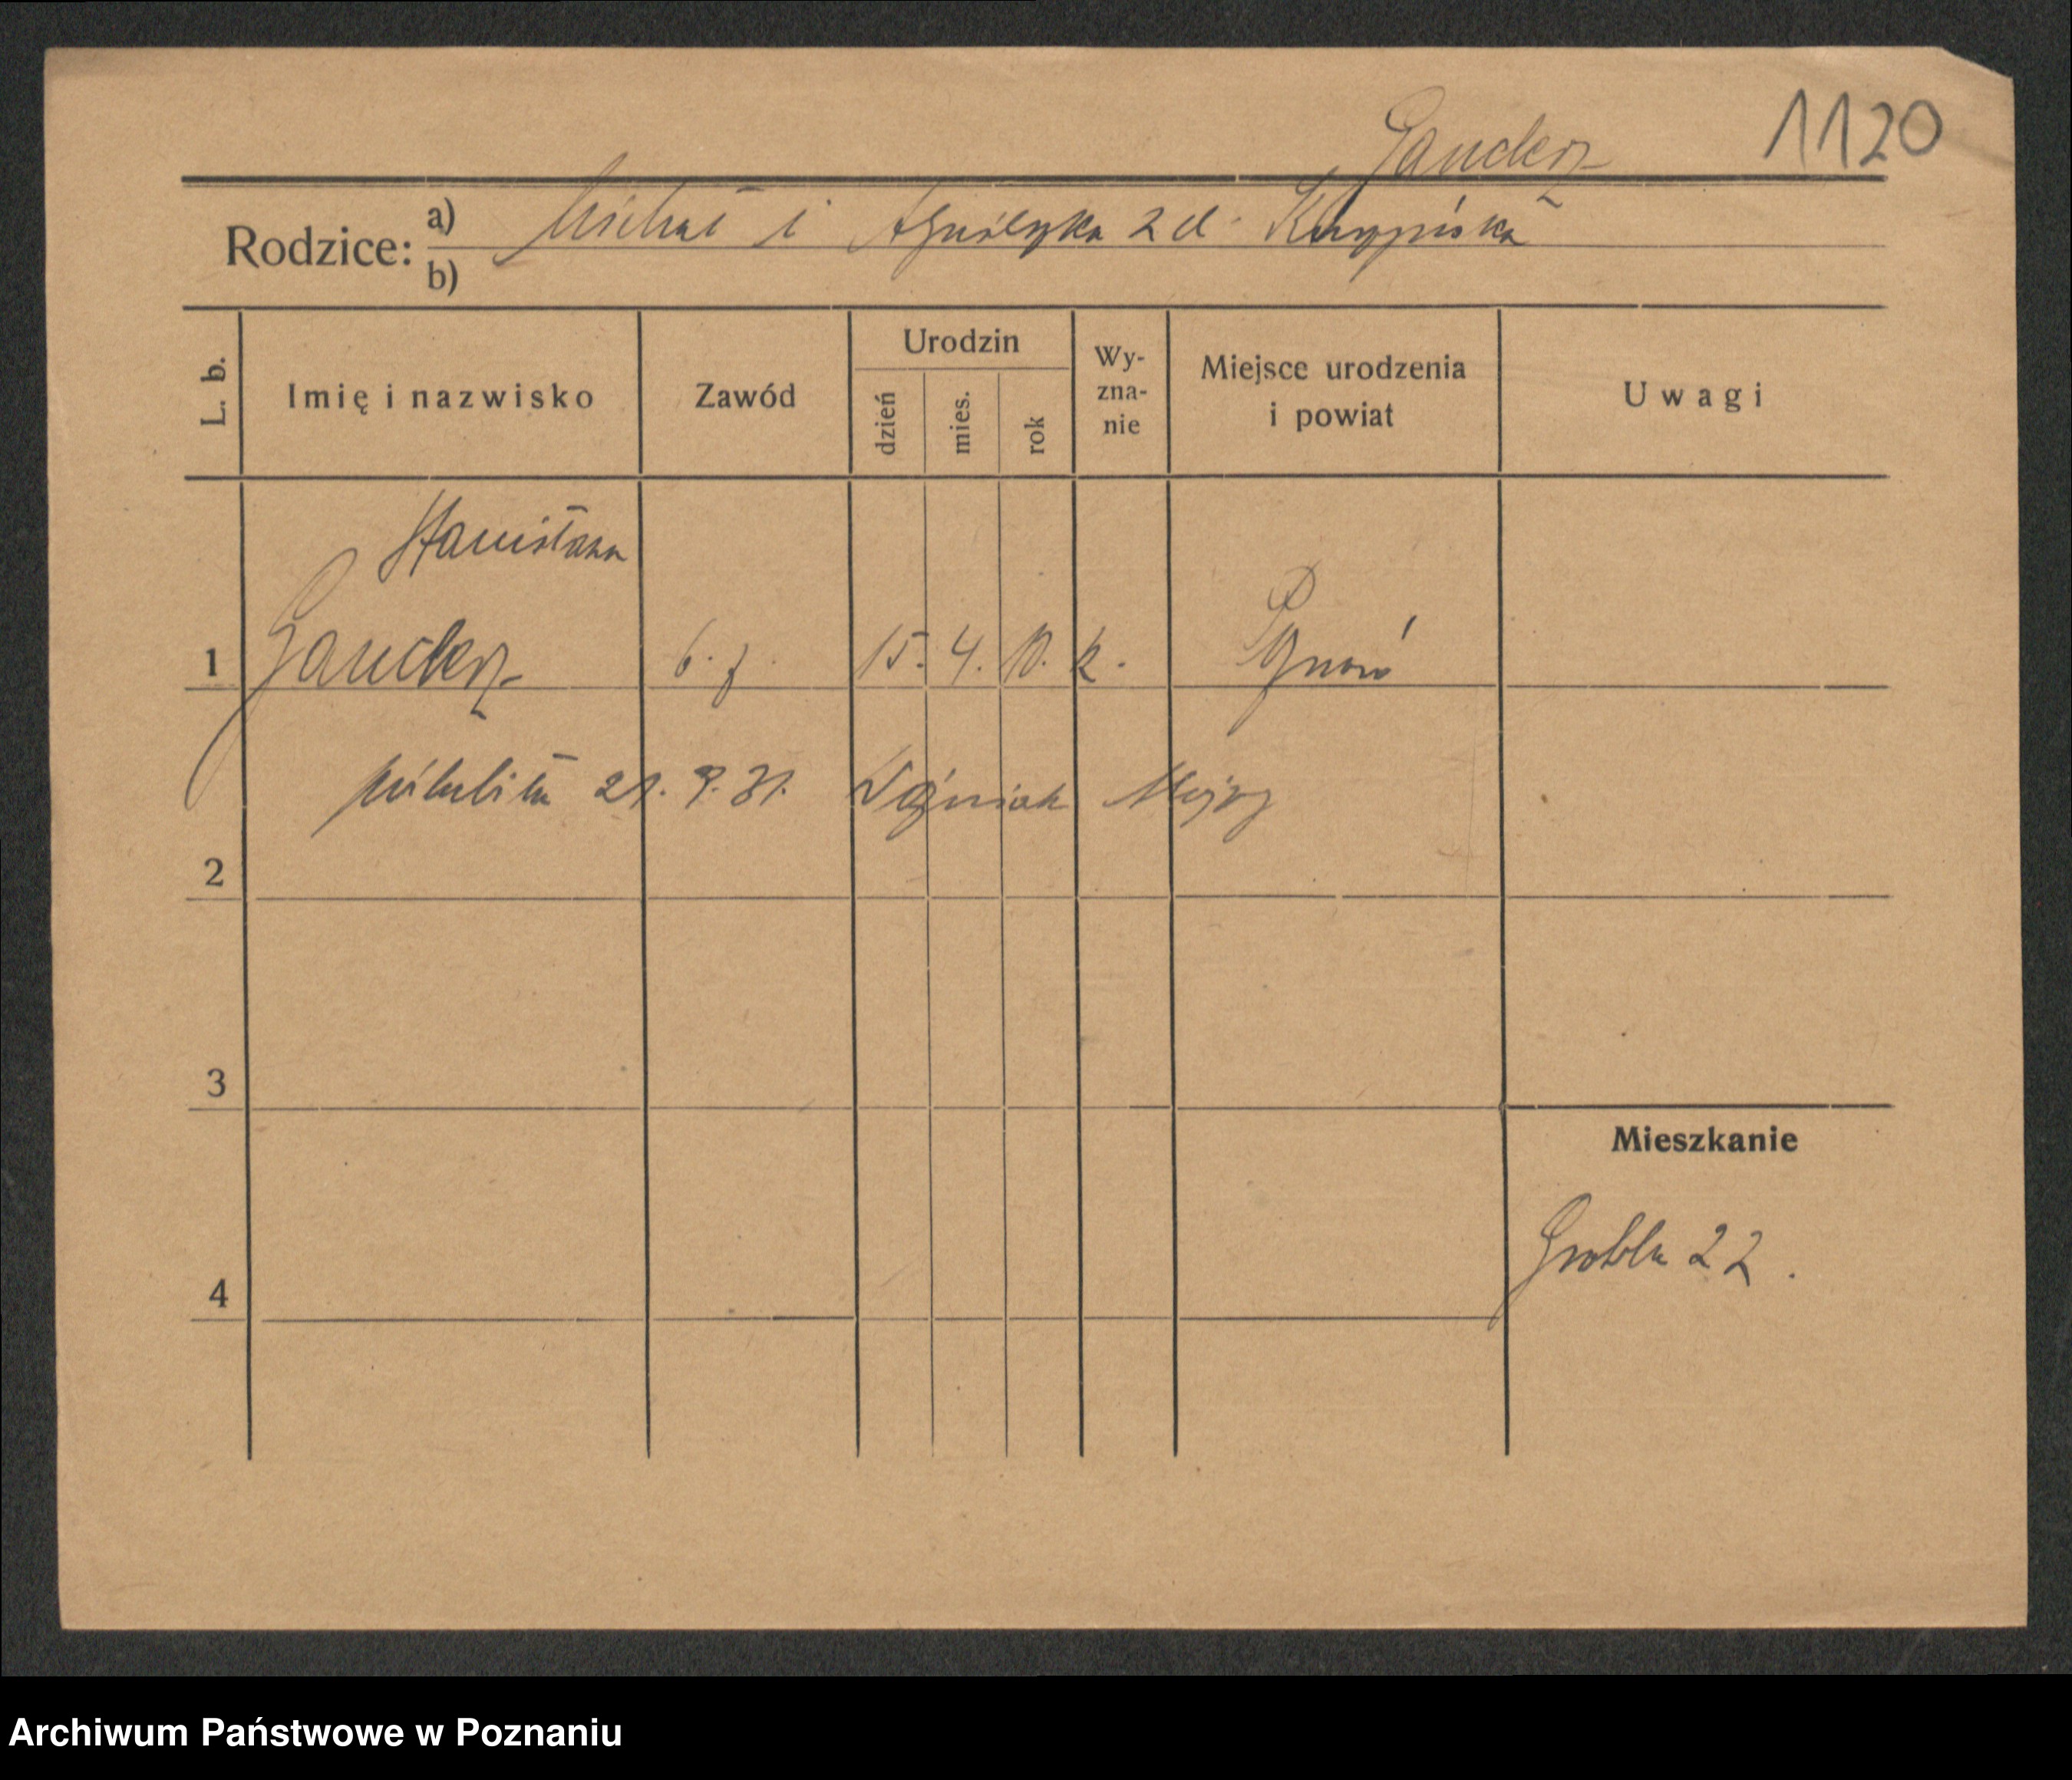 Gauderz
1120
Rodzice:
a) Michał i Agnieszka z d. Krupińska
b)
L. b.
Imię i nazwisko
Zawód
Urodzin
dzień
mies.
rok
Wy-
zna-
nie
Miejsce urodzenia
i powiat
Uwagi
Stanisława
1 Gauderz 6. z. 15. 4. 10. k.
21. 9. 31. Woźniak
2
3
Mieszkanie
Grobla 22.
4
Archiwum Państwowe w Poznaniu